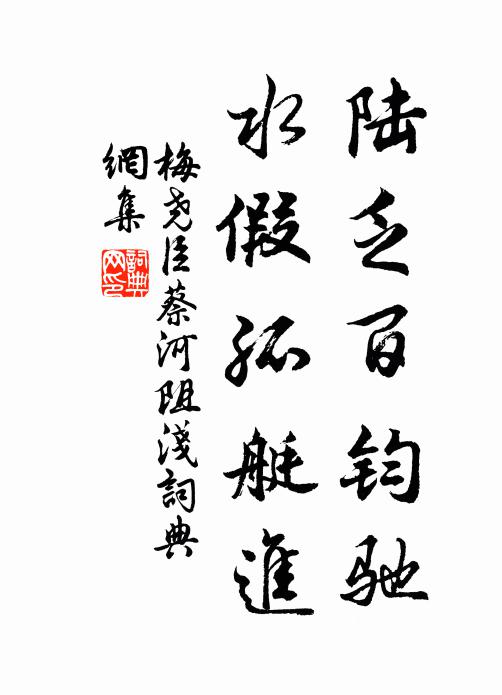 陆乏百钧驰
水假孤艇進
梅尧臣蔡河阻淺詞典
網集
詞典
网印